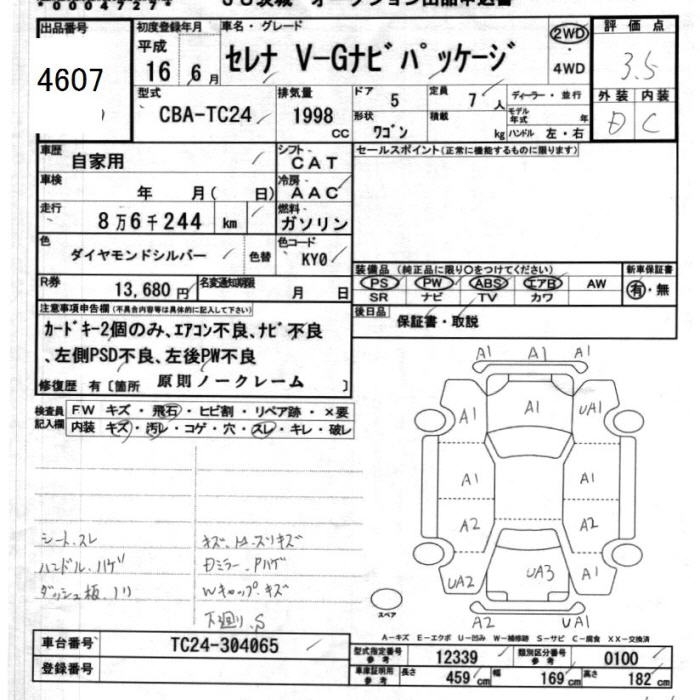 00047274
出品番号
4607
初度登録年月
平成
16年 6月
車名・グレード
セレナ V-Gナビパッケージ
2WD
・
4WD
評価点
3.5
外装 内装
D C
型式
CBA-TC24
排気量
1998
CC
ドア
5
定員
7人
ディーラー・並行
形状
ワゴン
積載
kg
モデル年式 年
ハンドル 左・右
車歴
自家用
シフト
CAT
車検
年 月( 日)
冷房
AAC
走行
8万6千244 km
燃料
ガソリン
色
ダイヤモンドシルバー
色替
色コード
KY0
R券
13,680円
名変通知期限
月 日
セールスポイント(正常に機能するものに限ります)
装備品 (純正品に限り○をつけてください)
PS PW ABS エアB AW
SR ナビ TV カワ
新車保証書
有・無
後日品
保証書・取説
注意事項申告欄(不具合内容等は具体的に記入して下さい)
カードキー2個のみ、エアコン不良、ナビ不良
、左側PSD不良、左後PW不良
修復歴 有〔箇所 原則ノークレーム 〕
検査員記入欄
FW キズ・飛石・ヒビ割・リペア跡・×要
内装 キズ・汚レ・コゲ・穴・スレ・キレ・破レ
シート、スレ
ハンドル、ハゲ
ダッシュ板、ノリ
Dミラー、Pハゲ
Wキャップ、キズ
下廻り、S
A1 A1 A1
A1 A1 UA1
A1 A1
A2 A2
UA2 UA3 A1
A2 UA1
スペア
A-キズ E-エクボ U-凹み W-補修跡 S-サビ C-腐食 XX-交換済
車台番号
TC24-304065
登録番号
型式指定番号
参考
12339
類別区分番号
参考
0100
車庫証明用
参考
長さ 459cm 幅 169cm 高さ 182cm